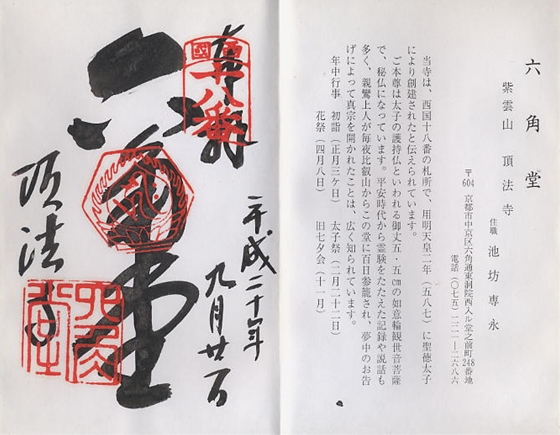 六角堂
紫雲山 頂法寺
住職 池坊専永
〒604 京都市中京区六角通東洞院西入ル堂之前町248番地
電話(〇七五)二二一―二六八六
当寺は、西国十八番の札所で、用明天皇二年(五八七)に聖徳太子
により創建されたと伝えられています。
ご本尊は太子の護持仏といわれる御丈五・五㎝の如意輪観世音菩薩
で、秘仏になっています。平安時代から霊験をたたえた記録や説話も
多く、親鸞上人が毎夜比叡山からこの堂に百日参籠され、夢中のお告
げによって真宗を開かれたことは、広く知られています。
年中行事 初詣(正月三ケ日) 太子祭(二月二十二日)
花祭(四月八日) 旧七夕会(十一月)
平成二十年
九月廿一日
奉拝
西国
十八番
六角堂
頂法寺